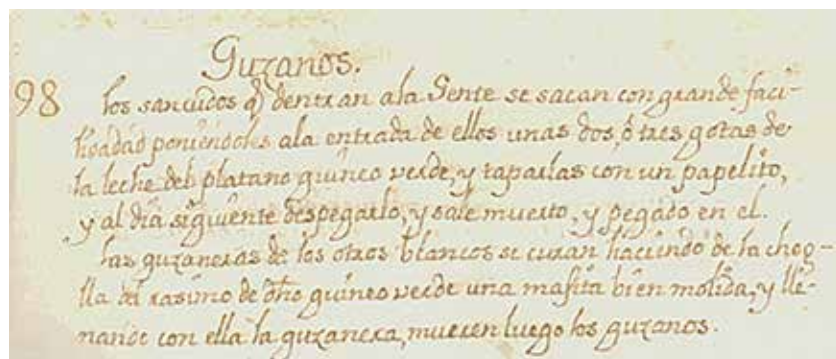 Guzanos.
98 los sancudos q̃ dentran ala Gente se sacan con grande faci-
lidad poniendoles ala entrada de ellos unas dos, ó tres gotas de
la leche del platano guineo verde, y taparlas con un papelito,
y al dia siguiente despegarlo, y sale muerto, y pegado en el.
las guzaneras de los otros blancos se curan haciendo de la chog-
lla del rasimo de dho guineo verde una masita bien molida, y lle-
nando con ella la guzanera, mueren luego los guzanos.